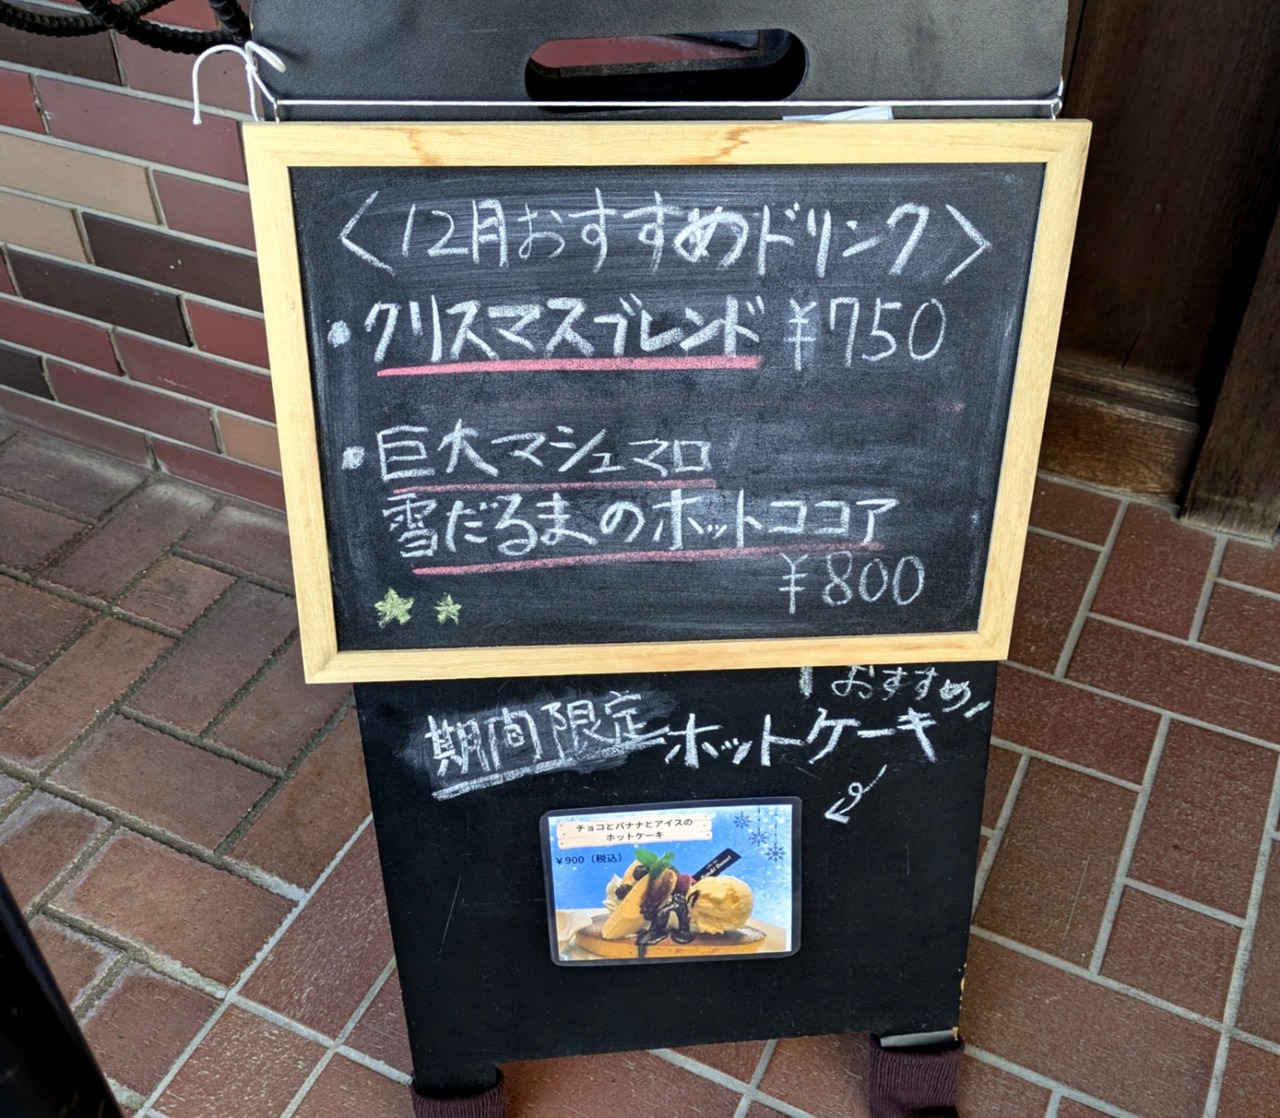 〈12月おすすめドリンク〉
・クリスマスブレンド ¥750
・巨大マシュマロ
雪だるまのホットココア
¥800
おすすめ!
期間限定 ホットケーキ
チョコとバナナとアイスの
ホットケーキ
¥900(税込)